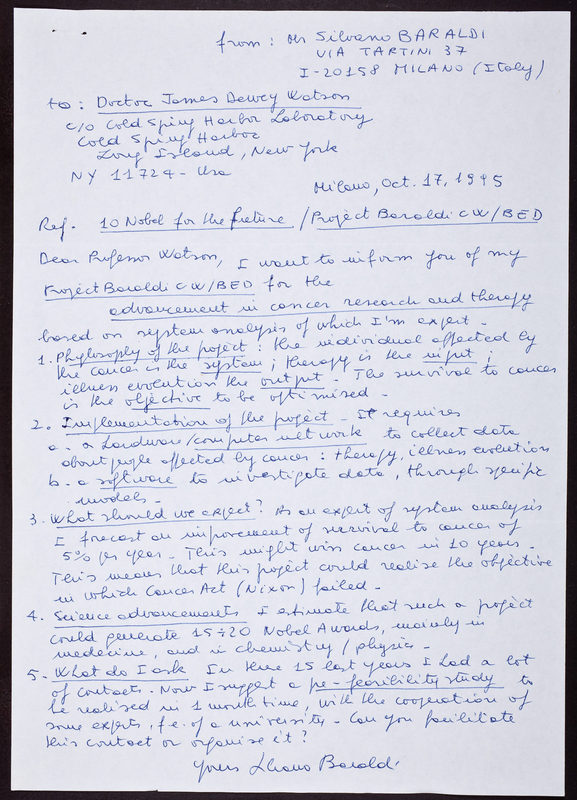 from: Mr Silvano BARALDI
VIA TARTINI 37
I-20158 MILANO (Italy)
to: Doctor James Dewey Watson
c/o Cold Sping Harbor Laboratory
Cold Sping Harbor
Long Island, New York
NY 11724 - Usa
Milano, Oct. 17, 1995
Ref. 10 Nobel for the future / Project Baraldi CW/BED
Dear Professor Watson, I want to inform you of my
Project Baraldi CW/BED for the
advancement in cancer research and therapy
based on system analysis of which I'm expert -
1. Phylosophy of the project: the individual affected by
the cancer is the system; therapy is the input;
illness evolution the output - The survival to cancer
is the objective to be optimised -
2. Implementation of the project - It requires
a. a hardware/computer network to collect data
about people affected by cancer: therapy, illness evolution
b. a software to investigate data, through specific
models -
3. What should we expect? As an expert of system analysis
I forecast an improvement of survival to cancer of
5% per year - This might win cancer in 10 years -
This means that this project could realise the objective
in which Cancer Act (Nixon) failed -
4. Science advancements I estimate that such a project
could generate 15÷20 Nobel Awards, mainly in
medecine, and in chemistry / physics -
5. What do I ask In these 15 last years I had a lot
of contacts. Now I suggest a pre-feasibility study to
be realised in 1 month time, with the cooperation of
some experts, f.e. of a university - Can you facilitate
this contact or organise it?
Yours Silvano Baraldi